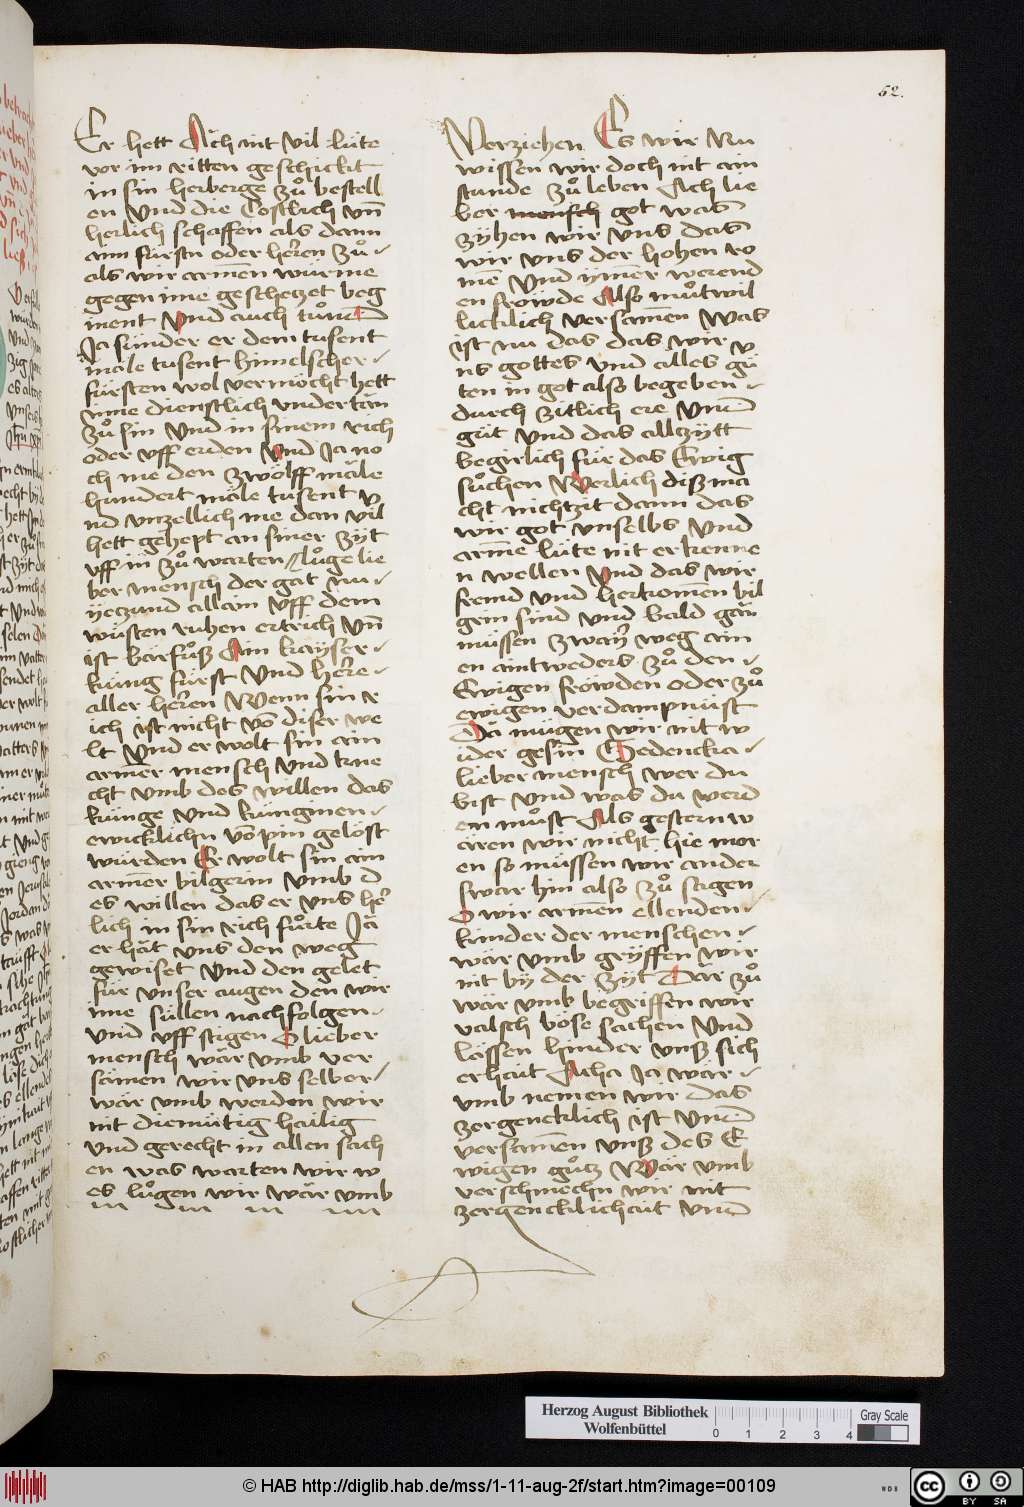 52.
Er hett Ach nit vil lüte
vor im ritten geschickt
in sin herberge zů bestell
en Vnd die Costlich vñ
herlich schaffen als dann
ann fürstn oder heren zů
als wir armen würme
gegen ime geschetzet beg
iment Vnd auch tůn
Ja sünder er dem tusent
male tusent himelscher
fürsten wol vermöcht hett
ime dienstlich vndertän
zů sin Vnd in sinem rich
oder vff erden Vnd Ja no
ch me den zwölff male
hundert male tusent v
nd vnzellich me dan vil
hett gehept an siner zyt
vff in zů warten // lůge lie
ber mensch der gat nu
iyeczund allain vff dem
wüsten ruhen ertrich Vñ
ist barfůß Ain kayser
küng fürst Vnd here
aller heren Wenn sin r
ich ist nicht vō diser we
lt Vnd er wolt sin ain
armer mensch vnd kne
cht vmb des willen das
künge vnd künginen
ewicklichn vō pin gelöst
würden Er wolt sin ain
armer bilgerin vmb d
es willen das er vns her
lich in sin rich fůrte Ja
er hät vns den weg
gewiset Vnd den gelet
für vnser augen den wir
ime süllen nachfolgen
vnd vff stigen O lieber
mensch wär vmb ver
sämen wir vns selber
wär vmb werden wir
nit diemütig hailig
vnd gerecht in allen sach
en was warten wir w
es lůgen wir wär vmb
Verziehen Es wir Nu
wissen wir doch nit ain
stunde zů leben Ach lie
ber mensch got was
zyhen wir vns das
wir vns der hohen ro
me Vnd ymer werend
en fröwde Also můtwil
licklich versamen Was
ist nu das das wir v
ns gottes vnd alles gü
ten in got also begeben
durch zitlich ere Vnd
güt vnd das allzytt
begirlich für das Ewig
sůchen Werlich diß ma
cht nichtzit dann das
wir got vnselbs Vnd
arme lüte nit erkenne
n wellen Vnd das wir
fremd vnd herkomen bil
grin sind vnd bald gan
müssen zway weg ain
en aintweders zů den
Ewigen fröwden oder zů
ewigen verdampnüst
Da mügen wir nit w
ider gesin Gedencka
lieber mensch wer du
bist vnd was du werd
en můst Als gestern w
aren wir nicht hie mor
en so müssen wir ander
swar hin also zů sagen
O wir armen ellenden
kinder der menschen
wär vmb gryffen wir
nit by der zyt Där zů
wär vmb begriffen wir
valsch böse sachen Vnd
lässen hinder vnß sich
erhait Aha Ja war
vmb nemen wir das
zergencklich ist Vnd
versamen vnß des E
wigen gůtz Wär vmb
verschmechn wir nit
zergencklichait vnd
Herzog August Bibliothek
Wolfenbüttel
0 1 2 3 4
Gray Scale
© HAB http://diglib.hab.de/mss/1-11-aug-2f/start.htm?image=00109
WDB
CC BY SA